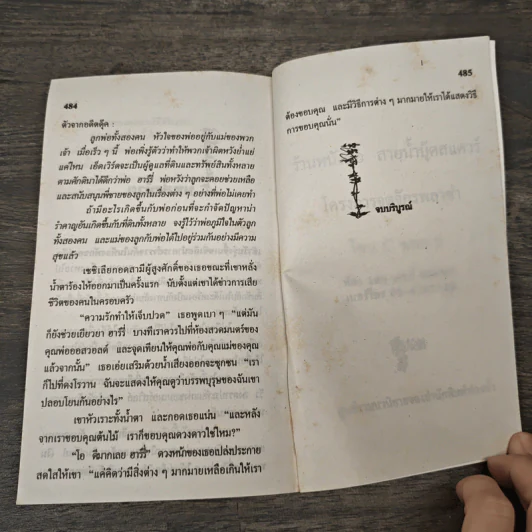 484
ตัวจากอดีตดุ๊ค :
ลูกพ่อทั้งสองคน หัวใจของพ่ออยู่กับแม่ของพวก
เจ้า เมื่อเร็ว ๆ นี้ พ่อเพิ่งรู้ตัวว่าทำให้พวกเจ้าผิดหวังย่ำแย่
แค่ไหน เอ็ดเวิร์ดจะเป็นผู้ดูแลที่ดินและทรัพย์สินทั้งหลาย
ตามศักดินาได้ดีกว่าพ่อ ฮารี่ พ่อหวังว่าลูกจะคอยช่วยเหลือ
และสนับสนุนพี่ชายของลูกในเรื่องต่าง ๆ อย่างที่พ่อไม่เคยทำ
ถ้ามีอะไรเกิดขึ้นกับพ่อก่อนที่จะกำจัดปัญหาน่า
รำคาญอันเกิดขึ้นกับที่ดินทั้งหลาย จงรู้ไว้ว่าพ่อภูมิใจในตัวลูก
ทั้งสองคน และแม่ของลูกกับพ่อได้ไปอยู่ร่วมกันอย่างมีความ
สุขแล้ว
เซซิเลียกอดสามีผู้สูงศักดิ์ของเธอขณะที่เขาหลั่ง
น้ำตาร้องไห้ออกมาเป็นครั้งแรก นับตั้งแต่เขาได้ข่าวการเสีย
ชีวิตของคนในครอบครัว
"ความรักทำให้เจ็บปวด" เธอพูดเบา ๆ "แต่มัน
ก็ยังช่วยเยียวยา ฮารี่ บางทีเราควรไปที่ห้องสวดมนต์ของ
คุณพ่อออสวอลด์ และจุดเทียนให้คุณพ่อกับคุณแม่ของคุณ
แล้วจากนั้น" เธอเอ่ยเสริมด้วยน้ำเสียงออกจะซุกซน "เรา
ก็ไปที่ดงโรวาน ฉันจะแสดงให้คุณดูว่าบรรพบุรุษของฉันเขา
ปลอบโยนกันอย่างไร"
เขาหัวเราะทั้งน้ำตา และกอดเธอแน่น "และหลัง
จากเราขอบคุณต้นไม้ เราก็ขอบคุณดวงดาวใช่ไหม?"
"โอ ดีมากเลย ฮารี่" ดวงหน้าของเธอเปล่งประกาย
สดใสให้เขา "แค่คิดว่ามีสิ่งต่าง ๆ มากมายเหลือเกินให้เรา
485
ต้องขอบคุณ และมีวิธีการต่าง ๆ มากมายให้เราได้แสดงวิธี
การขอบคุณนั่น"
จบบริบูรณ์